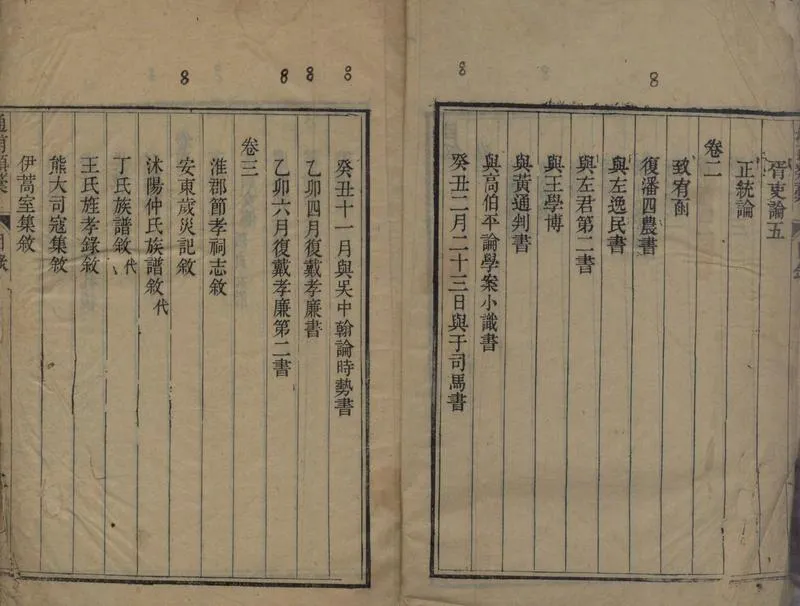 胥吏論五
正統論
卷二
致宥函
復潘四農書
與左逸民書
與左君第二書
與王學博
與黃通判書
與高伯平論學案小識書
癸丑二月二十三日與于司馬書
癸丑十一月與吴中翰論時勢書
乙卯四月復戴孝廉書
乙卯六月復戴孝廉第二書
卷三
淮郡節孝祠志敘
安東歲災記敘
沭陽仲氏族譜敘代
丁氏族譜敘代
王氏旌孝錄敘
熊大司寇集敘
伊蒿室集敘
8
8
8
8
8
8